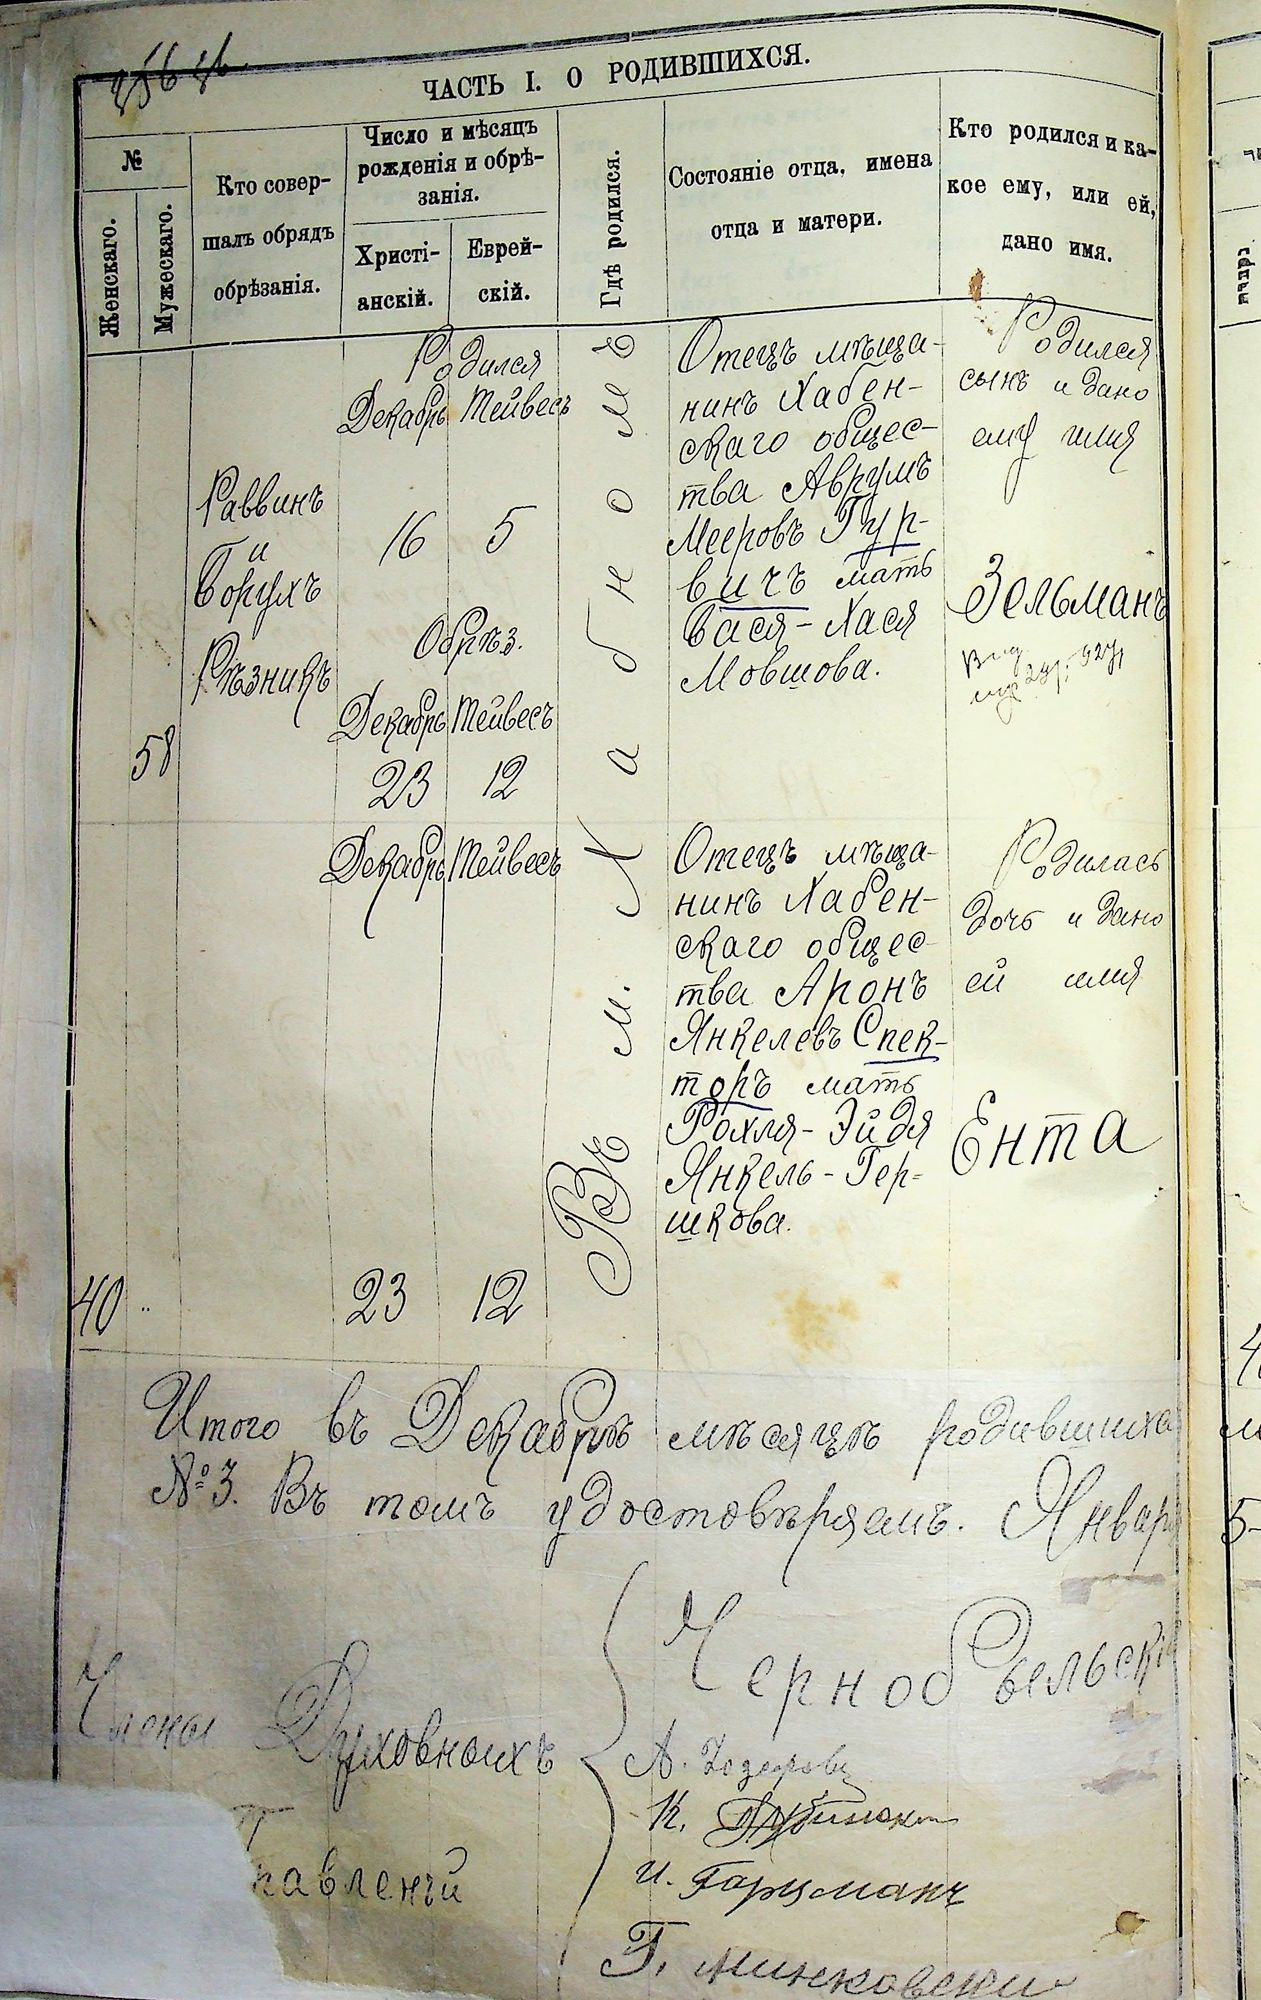 ЧАСТЬ I. О РОДИВШИХСЯ.
№
Женскаго.
Мужескаго.
Кто совер-
шалъ обрядъ
обрѣзанія.
Число и мѣсяцъ
рожденія и обрѣ-
занія.
Христі-
анскій.
Еврей-
скій.
Гдѣ родился.
Состояніе отца, имена
отца и матери.
Кто родился и ка-
кое ему, или ей,
дано имя.
58
Раввинъ
и
Борухъ
Рѣзникъ
Родился
Декабрь Тейвесъ
16 5
Обрѣз.
Декабрь Тейвесъ
23 12
Въ м. Хабномѣ
Отецъ мѣща-
нинъ Хабен-
скаго общес-
тва Аврумъ
Мееровъ Гур-
вичъ мать
Бася-Хася
Мовшова.
Родился
сынъ и дано
ему имя
Зельманъ
40
Декабрь Тейвесъ
23 12
Отецъ мѣща-
нинъ Хабен-
скаго общес-
тва Аронъ
Янкелевъ Спек-
торъ мать
Рохля-Эйдя
Янкель-Гер-
шкова.
Родилась
дочь и дано
ей имя
Ента
Итого въ Декабрѣ мѣсяцѣ родившихся
№ 3. Въ томъ удостовѣряемъ. Января
Члены Духовныхъ
Правленій
Чернобыльскій
И. Гарцманъ
Г. Минковский